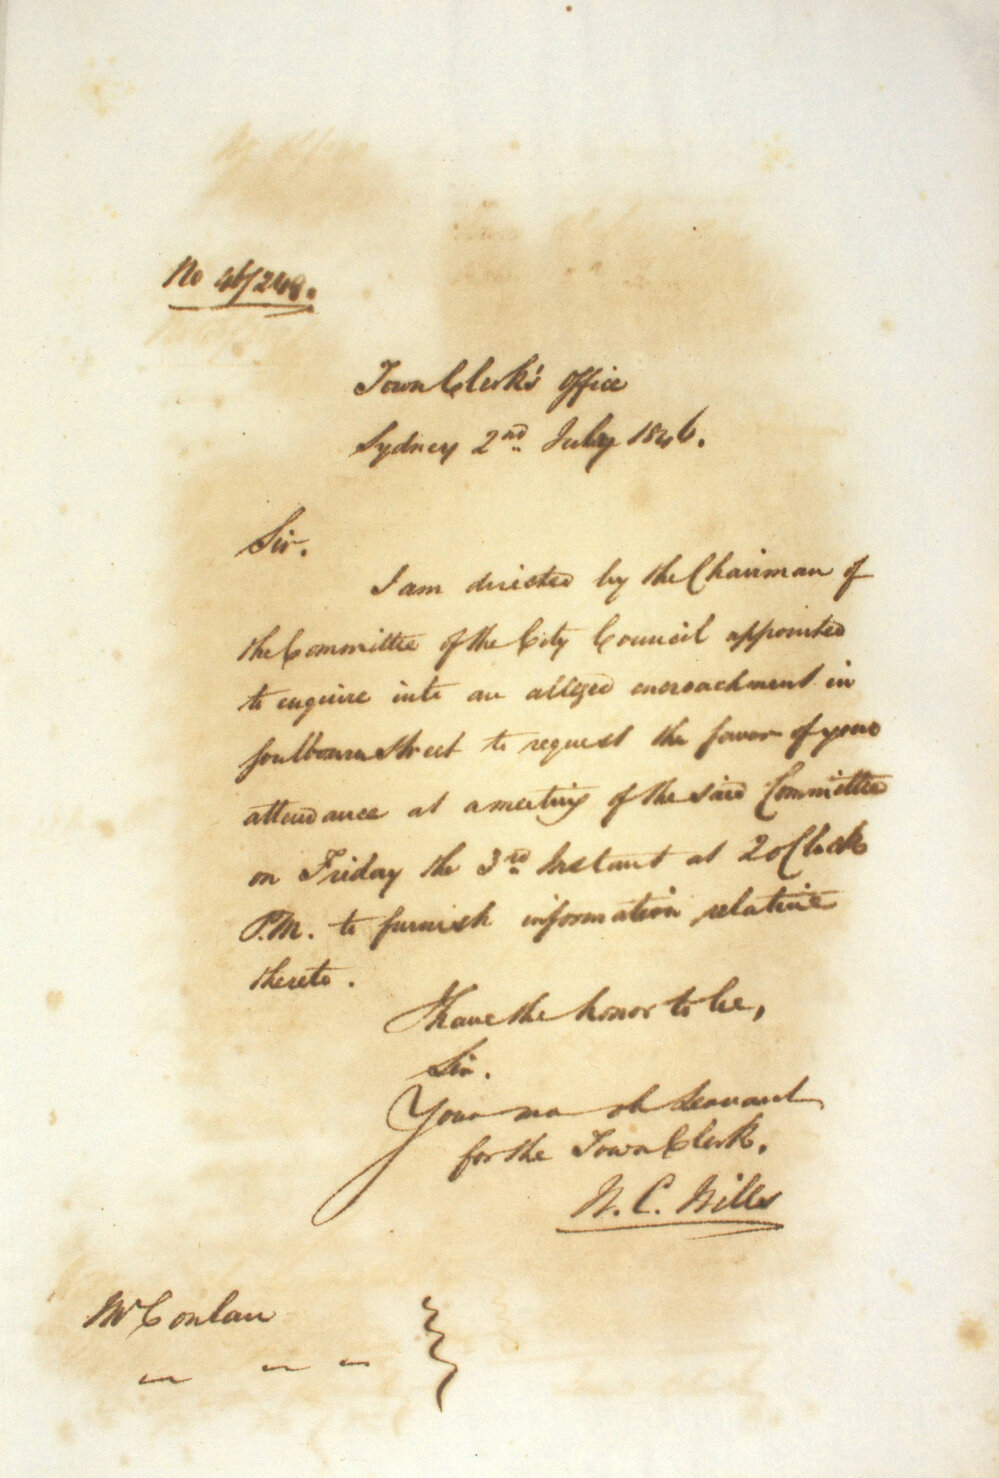 No 46/248.
Town Clerk's Office
Sydney 2nd July 1846.
Sir.
I am directed by the Chairman of
the Committee of the City Council appointed
to enquire into an alleged encroachment in
Goulbourn Street to request the favor of your
attendance at a meeting of the said Committee
on Friday the 3rd Instant at 2 oClock
P.M. to furnish information relative
thereto.
I have the honor to be,
Sir.
Your mo ob Servant
for the Town Clerk.
W. C. Wills
Mr Conlan